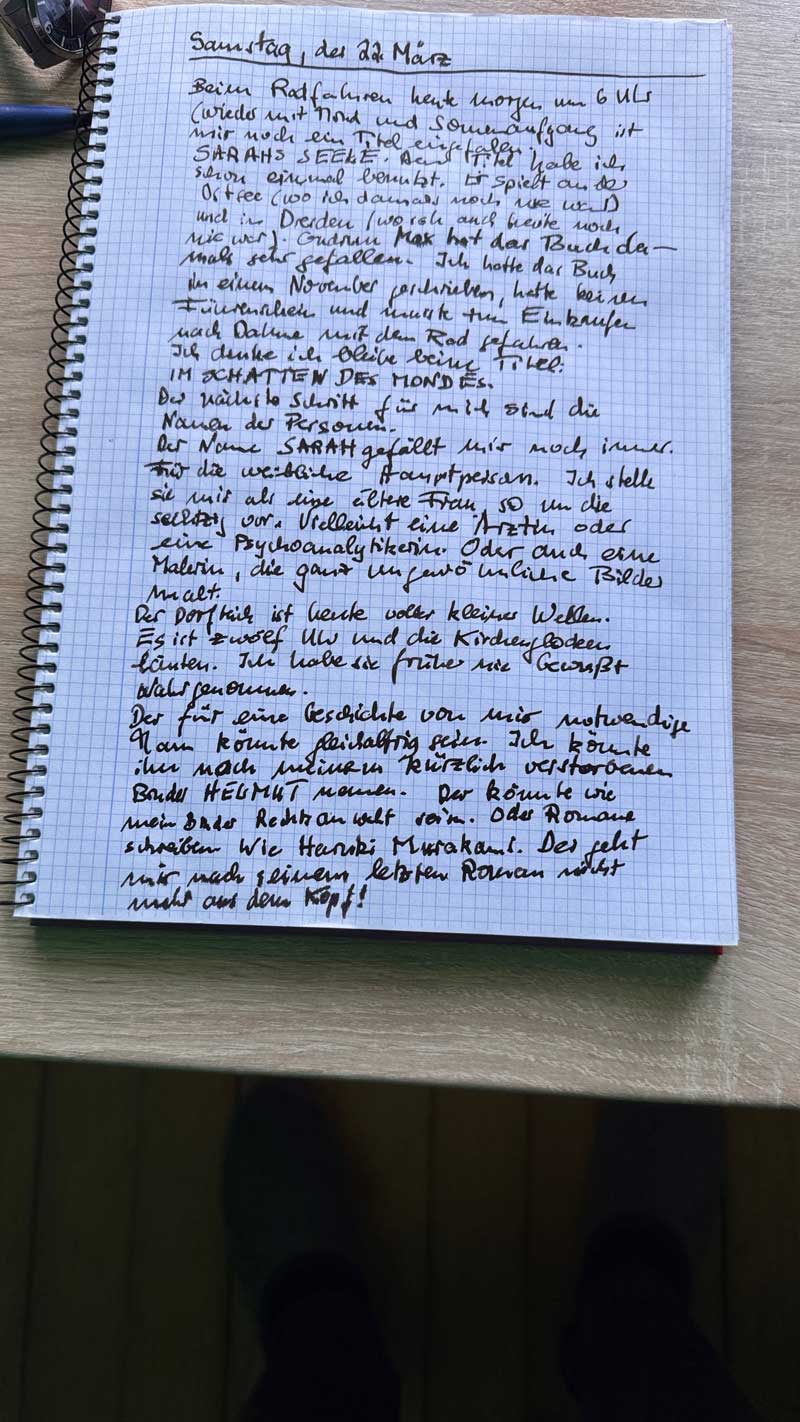 Samstag, der 22. März
Beim Radfahren heute morgen um 6 Uhr
(wieder mit Mond und Sonnenaufgang ist
mir noch ein Titel eingefallen.
SARAHS SEELE. Den Titel habe ich
schon einmal benutzt. Er spielt an der
Ostsee (wo ich damals noch nie war)
und in Dresden (wo ich auch heute noch
nie war). Gudrun Max hat das Buch da-
mals sehr gefallen. Ich hatte das Buch
in einem November geschrieben, hatte keinen
Führerschein und musste zum Einkaufen
nach Dahme mit dem Rad gefahren.
Ich denke ich bleibe beim Titel:
IM SCHATTEN DES MONDES.
Der nächste Schritt für mich sind die
Namen der Personen.
Der Name SARAH gefällt mir noch immer.
Für die weibliche Hauptperson. Ich stelle
sie mir als eine ältere Frau so um die
sechzig vor. Vielleicht eine Ärztin oder
eine Psychoanalytikerin. Oder auch eine
Malerin, die ganz ungewöhnliche Bilder
malt.
Der Dorfteich ist heute voller kleiner Wellen.
Es ist zwölf Uhr und die Kirchenglocken
läuten. Ich habe sie früher nie bewußt
wahrgenommen.
Der für eine Geschichte von mir notwendige
Mann könnte gleichaltrig sein. Ich könnte
ihn nach meinem kürzlich verstorbenen
Bruder HELMUT nennen. Der könnte wie
mein Bruder Rechtsanwalt sein. Oder Romane
schreiben wie Haruki Murakami. Der geht
mir nach seinem letzten Roman nicht
mehr aus dem Kopf!